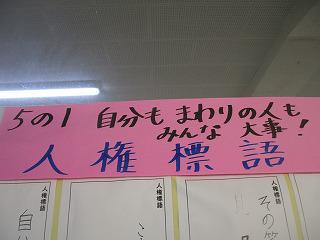 5の1 自分も まわりの人も
みんな 大事!
人権標語
人権標語
人権標語
人権標語
その
自
こ